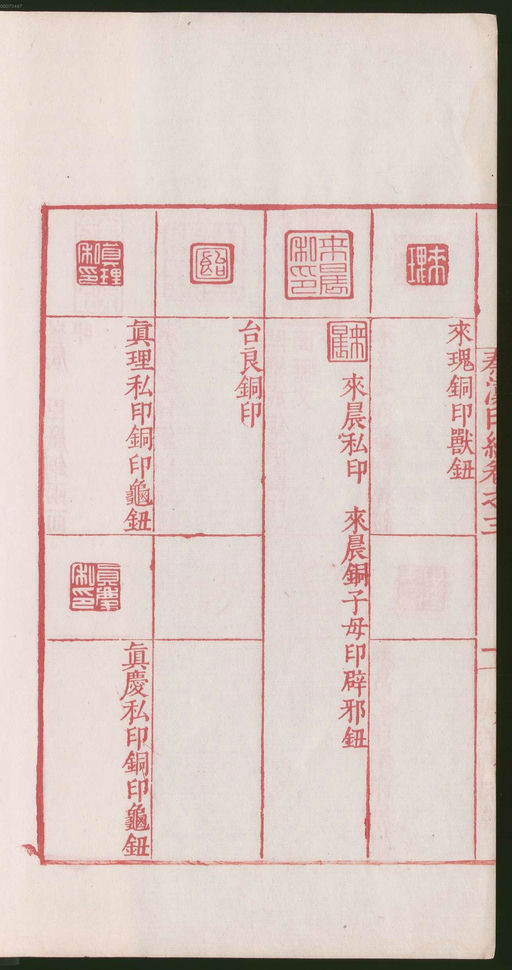 秦漢印統卷之三
來瑰銅印獸鈕
來晨私印
來晨
來晨私印 來晨銅子母印辟邪鈕
台良銅印
眞理私印
眞理私印銅印龜鈕
眞慶私印
眞慶私印銅印龜鈕